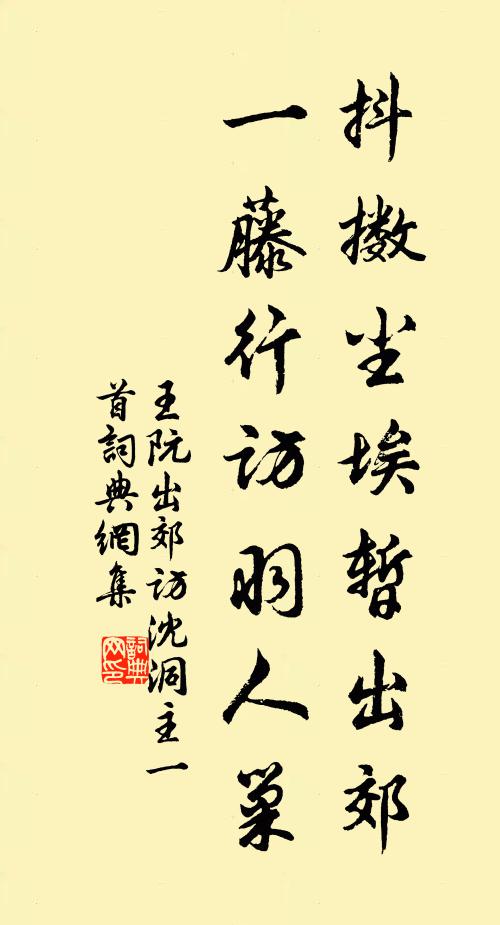 抖擞尘埃暂出郊
一藤行访羽人巢
王阮出郊访沈洞主一
首詞典網集
詞典
网印